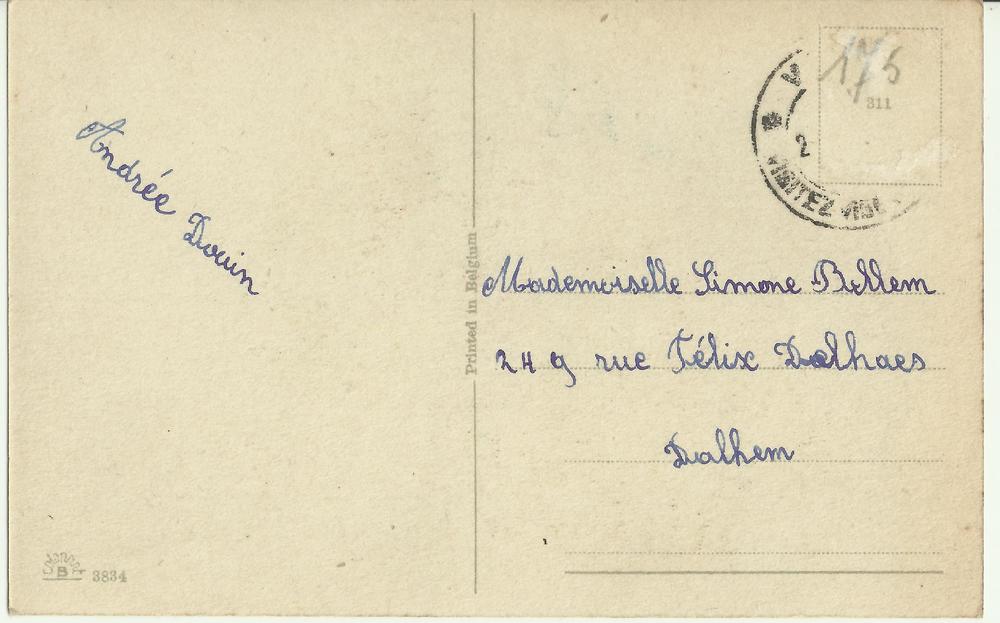 Andrée Douin
Printed in Belgium
175
311
2
Mademoiselle Simone Bellem
249 rue Félix Dalhaes
Dalhem
B 3834